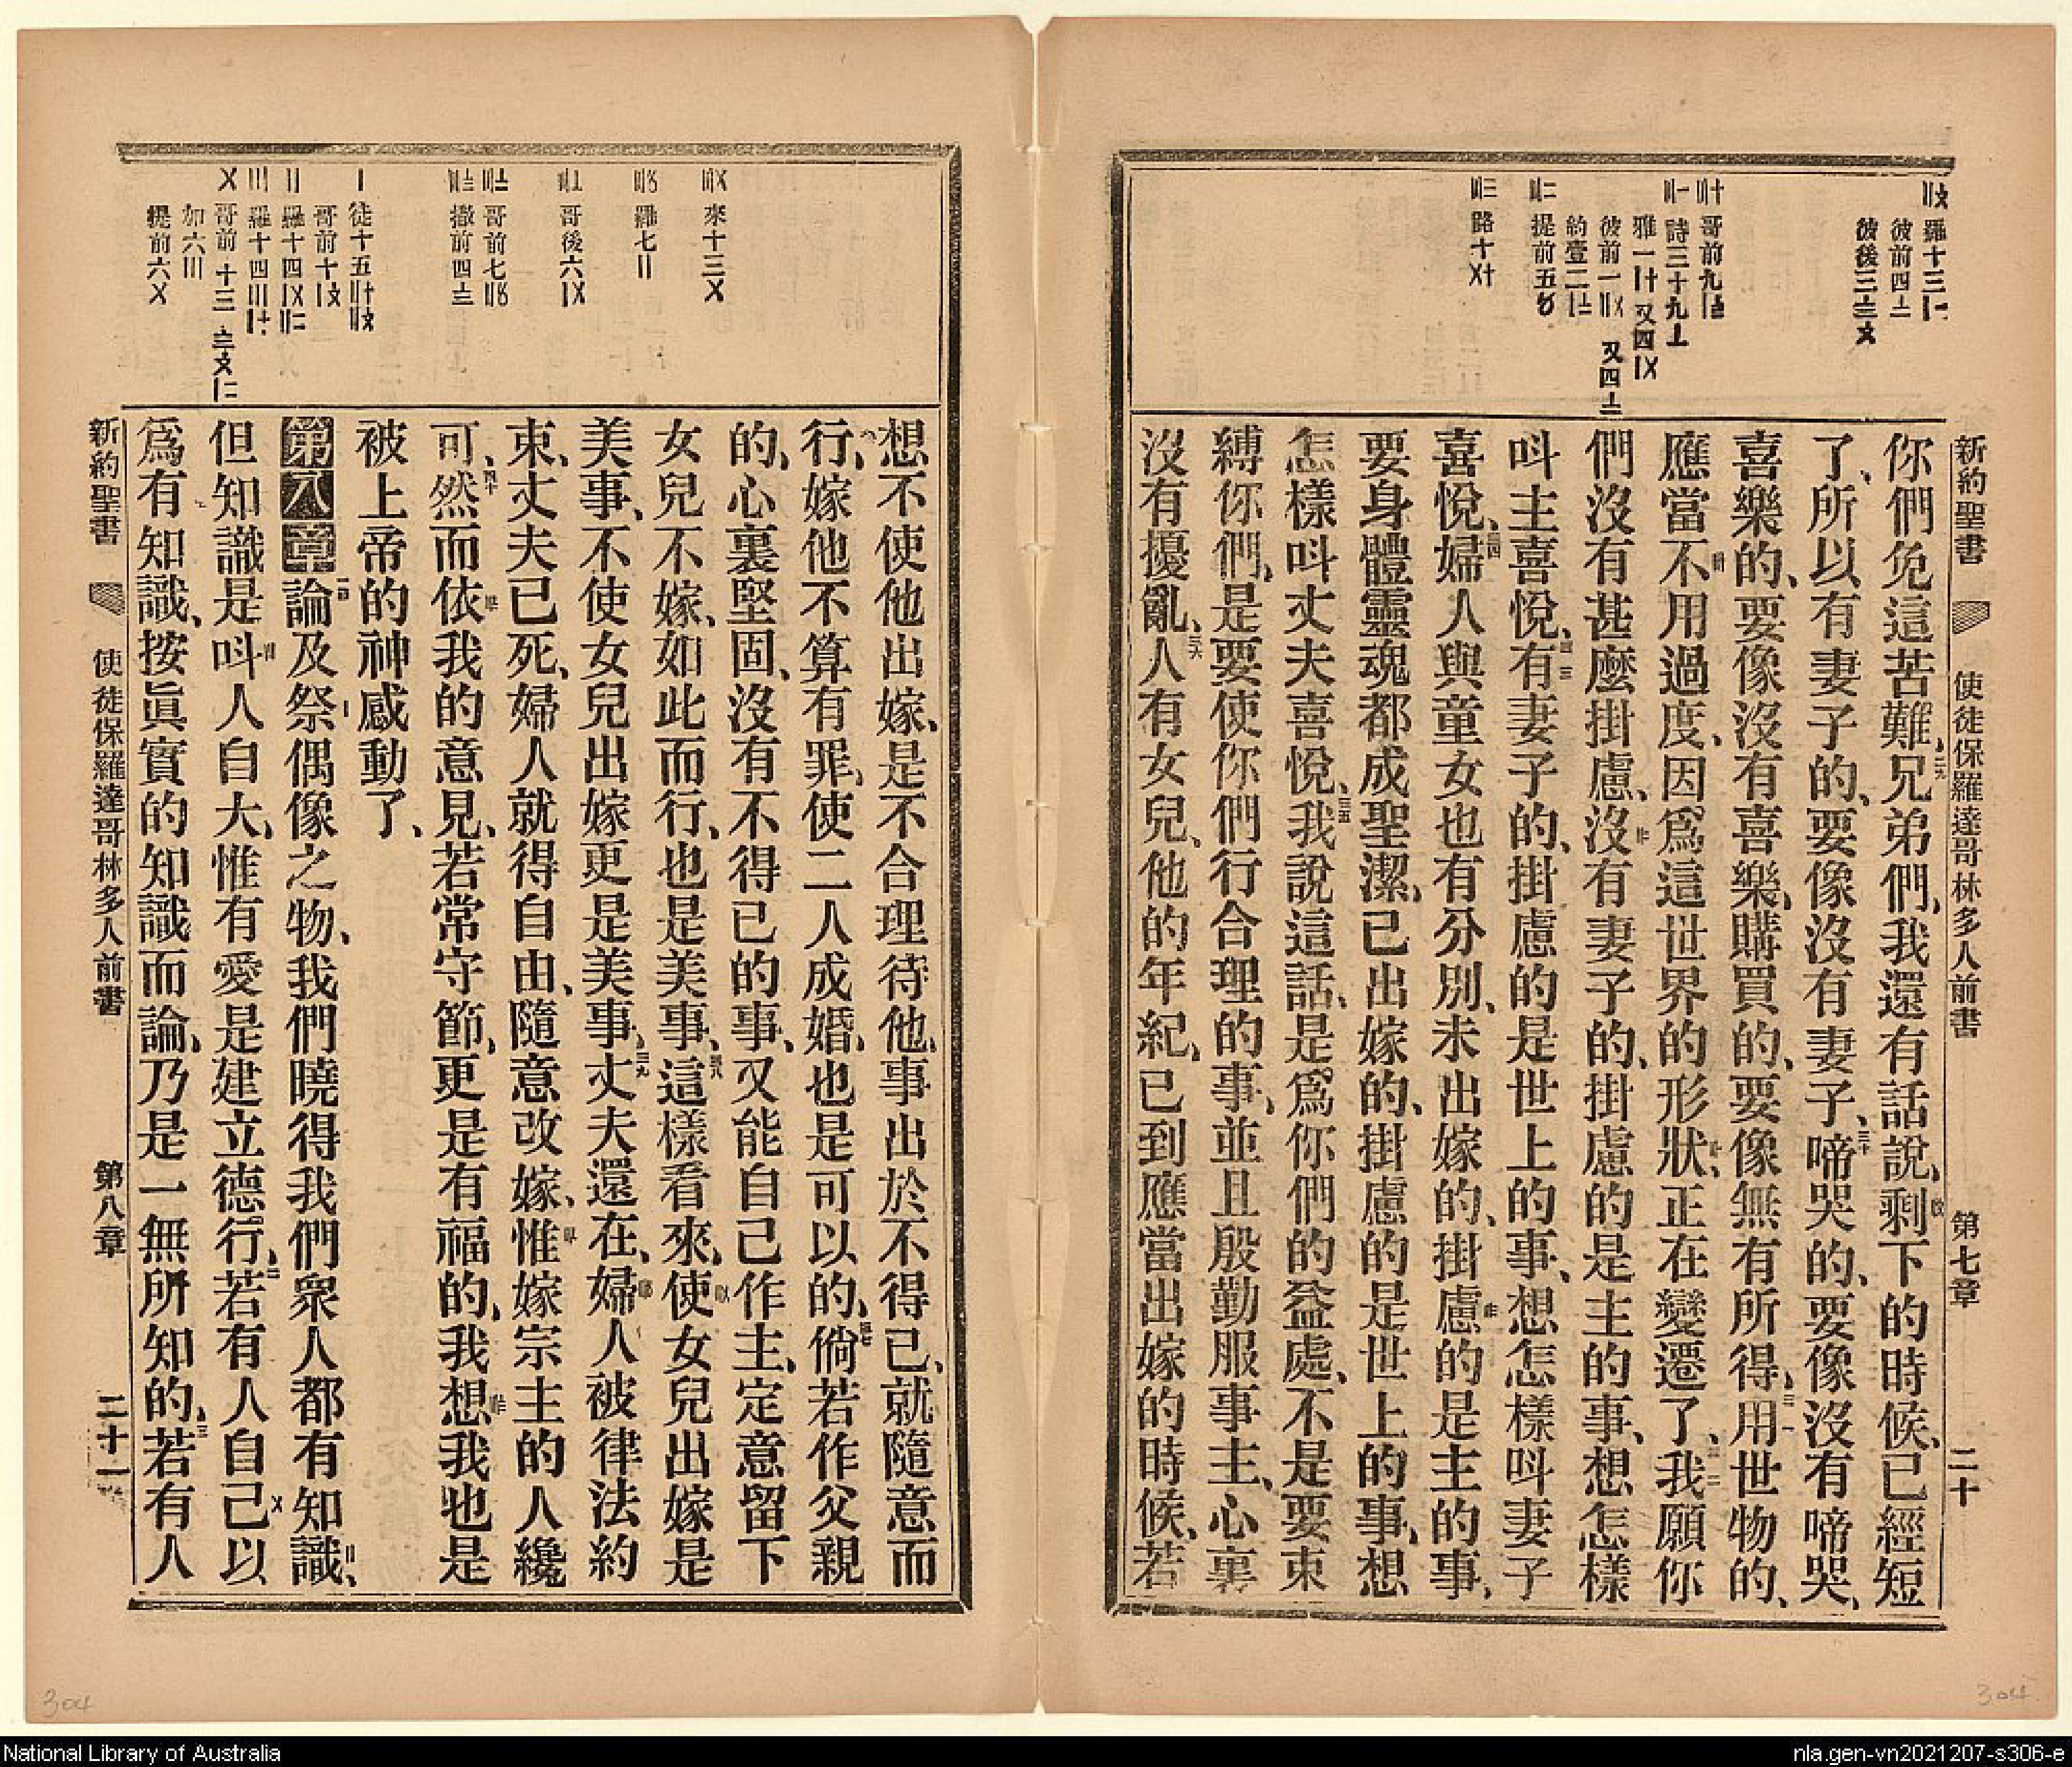 新約聖書 使徒保羅達哥林多人前書 第七章 二十
羅十三
彼前四
彼後三
哥前九
詩三十九
雅一 又四
彼前一 又四
約壹二
提前五
路十
你們免這苦難、兄弟們、我還有話說、剩下的時候、已經短
了、所以有妻子的、要像沒有妻子、啼哭的、要像沒有啼哭、
喜樂的、要像沒有喜樂、購買的、要像無有所得、用世物的、
應當不用過度、因爲這世界的形狀、正在變遷了、我願你
們沒有甚麼掛慮、沒有妻子的、掛慮的是主的事、想怎樣
呌主喜悅、有妻子的、掛慮的是世上的事、想怎樣呌妻子
喜悅、婦人與童女也有分別、未出嫁的、掛慮的是主的事、
要身體靈魂都成聖潔、已出嫁的、掛慮的是世上的事、想
怎樣呌丈夫喜悅、我說這話、是爲你們的益處、不是要束
縛你們、是要使你們行合理的事、並且殷勤服事主、心裏
沒有擾亂、人有女兒、他的年紀、已到應當出嫁的時候、若
想不使他出嫁、是不合理待他、事出於不得已、就隨意而
行、嫁他不算有罪、使二人成婚、也是可以的、倘若作父親
的、心裏堅固、沒有不得已的事、又能自己作主、定意留下
女兒不嫁、如此而行、也是美事、這樣看來、使女兒出嫁是
美事、不使女兒出嫁更是美事、丈夫還在、婦人被律法約
束、丈夫已死、婦人就得自由、隨意改嫁、惟嫁宗主的人纔
可、然而依我的意見、若常守節、更是有福的、我想我也是
被上帝的神感動了、
第八章 論及祭偶像之物、我們曉得我們衆人都有知識、
但知識是呌人自大、惟有愛是建立德行、若有人自己以
爲有知識、按眞實的知識而論、乃是一無所知的、若有人
來十三〤
羅七〢
哥後六
哥前七
撒前四
徒十五
哥前十
羅十四
羅十四
哥前十三
加六〣
提前六〤
新約聖書 使徒保羅達哥林多人前書 第八章 二十一
304
304
National Library of Australia
nla.gen-vn2021207-s306-e